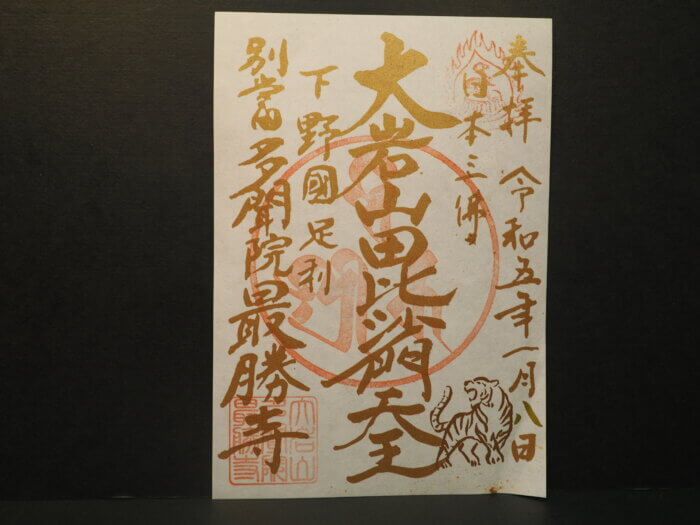 奉拝 令和五年一月八日
日本三佛
大岩山毘沙門天王
下野國足利
別當多聞院最勝寺